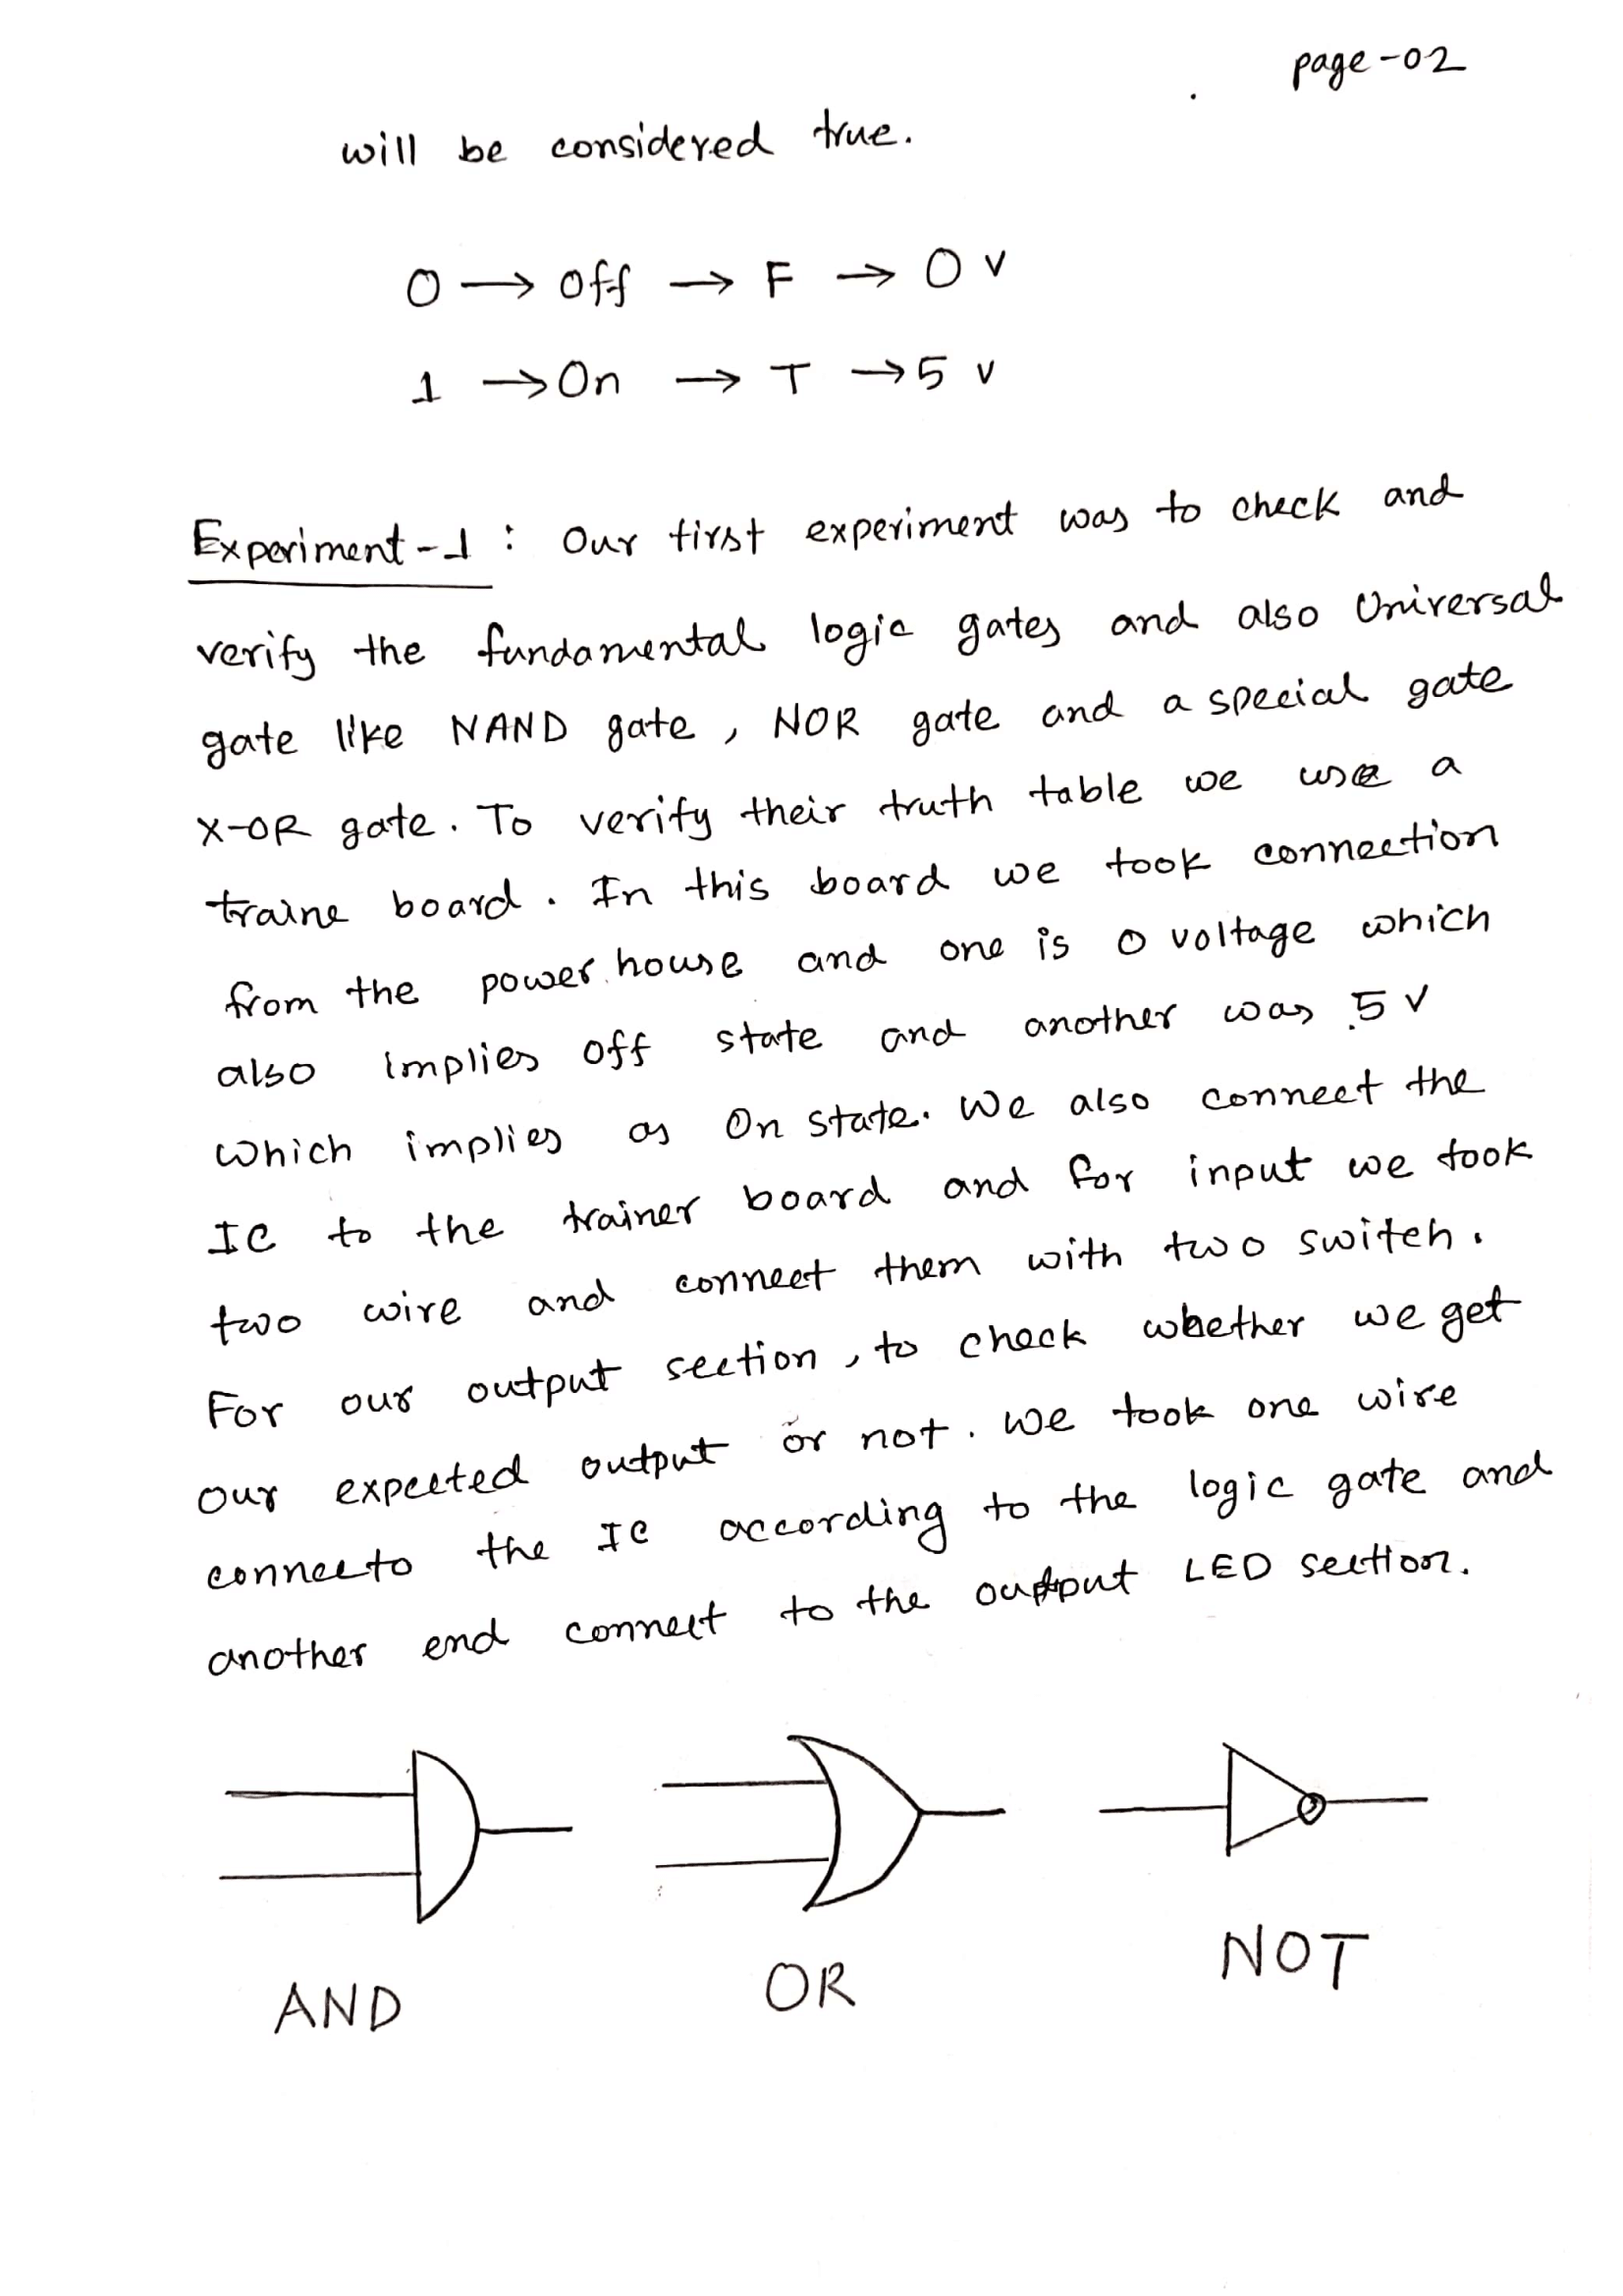 page-02
will be considered true.
0 → Off → F → 0 v
1 → On → T → 5 v
Experiment-1 : Our first experiment was to check and
verify the fundamental logic gates and also Universal
gate like NAND gate, NOR gate and a special gate
X-OR gate. To verify their truth table we use a
traine board. In this board we took connection
from the power house and one is 0 voltage which
also implies off state and another was 5 V
which implies as On state. We also connect the
IC to the trainer board and for input we took
two wire and connect them with two switch.
For our output section, to check whether we get
our expected output or not. We took one wire
connecto the IC according to the logic gate and
another end connect to the output LED section.
AND OR NOT